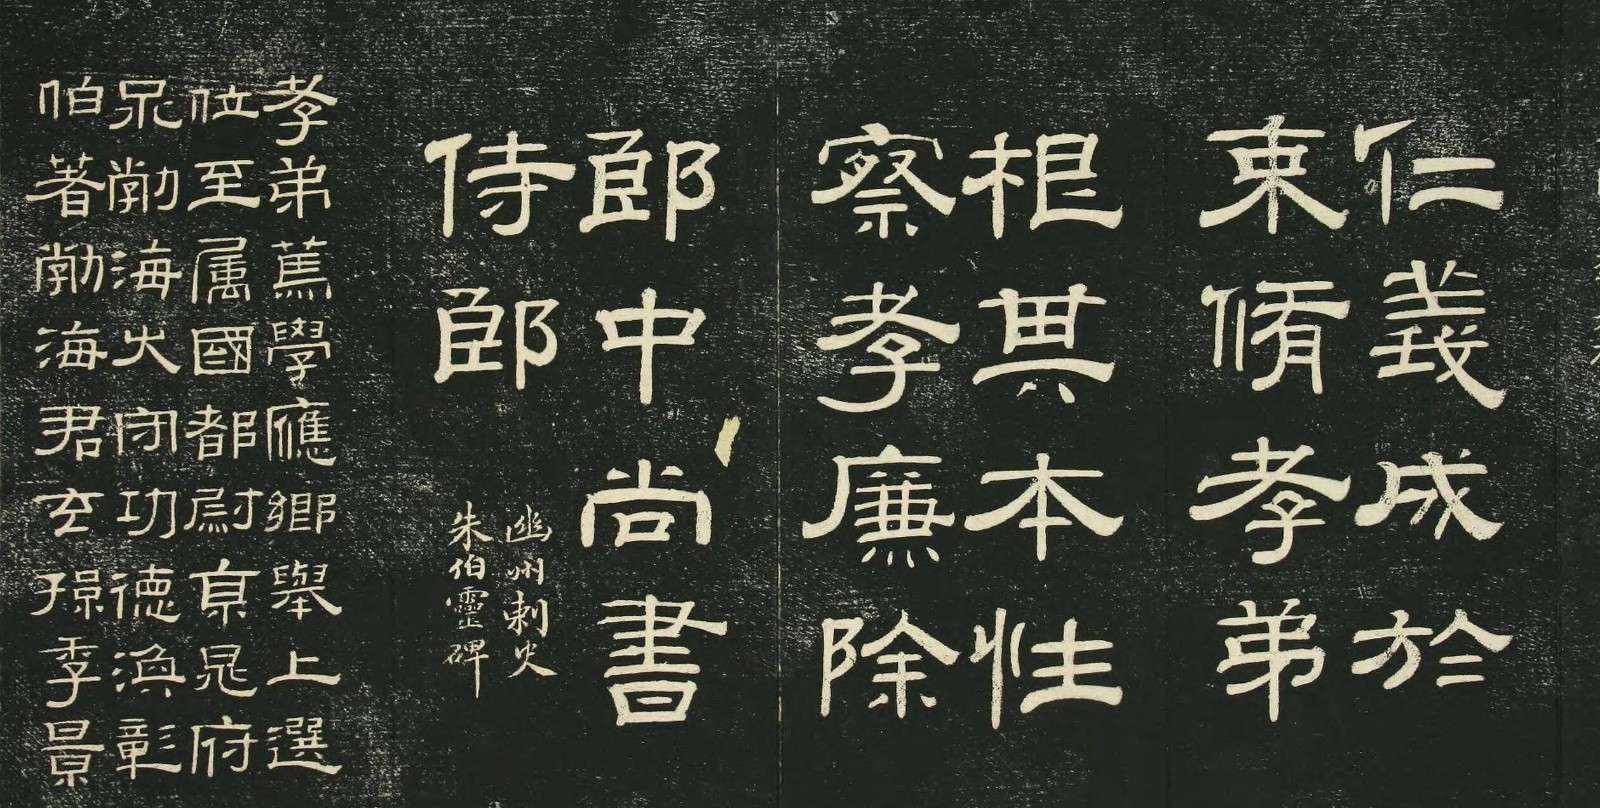 仁義成於
束脩孝弟
根其本性
察孝廉除
郎中尚書
侍郎
幽州刺史
朱伯靈碑
孝弟篤學應鄉舉上選
位至属國都尉京晁府
勃海功德渙彰
伯著勃海君玄孫季景